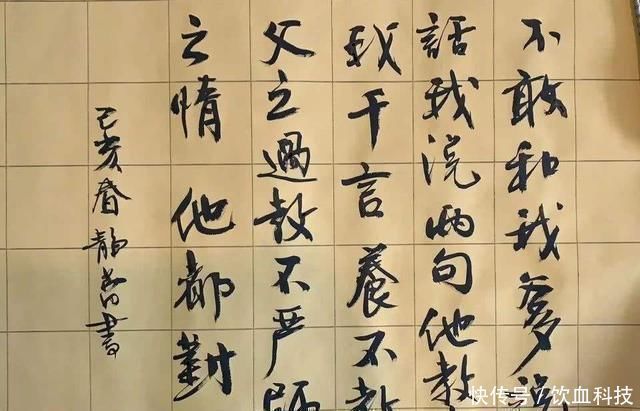 不敢和我爹說
話我说两句他教
我千言養不教
父之過教不严師
之情他都對
己亥春静書
快传号/饮血科技